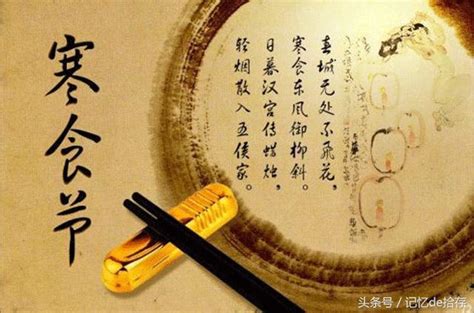 寒食节
春城无处不飞花，
寒食东风御柳斜。
日暮汉宫传蜡烛，
轻烟散入五侯家。
头条号／记忆de拾存